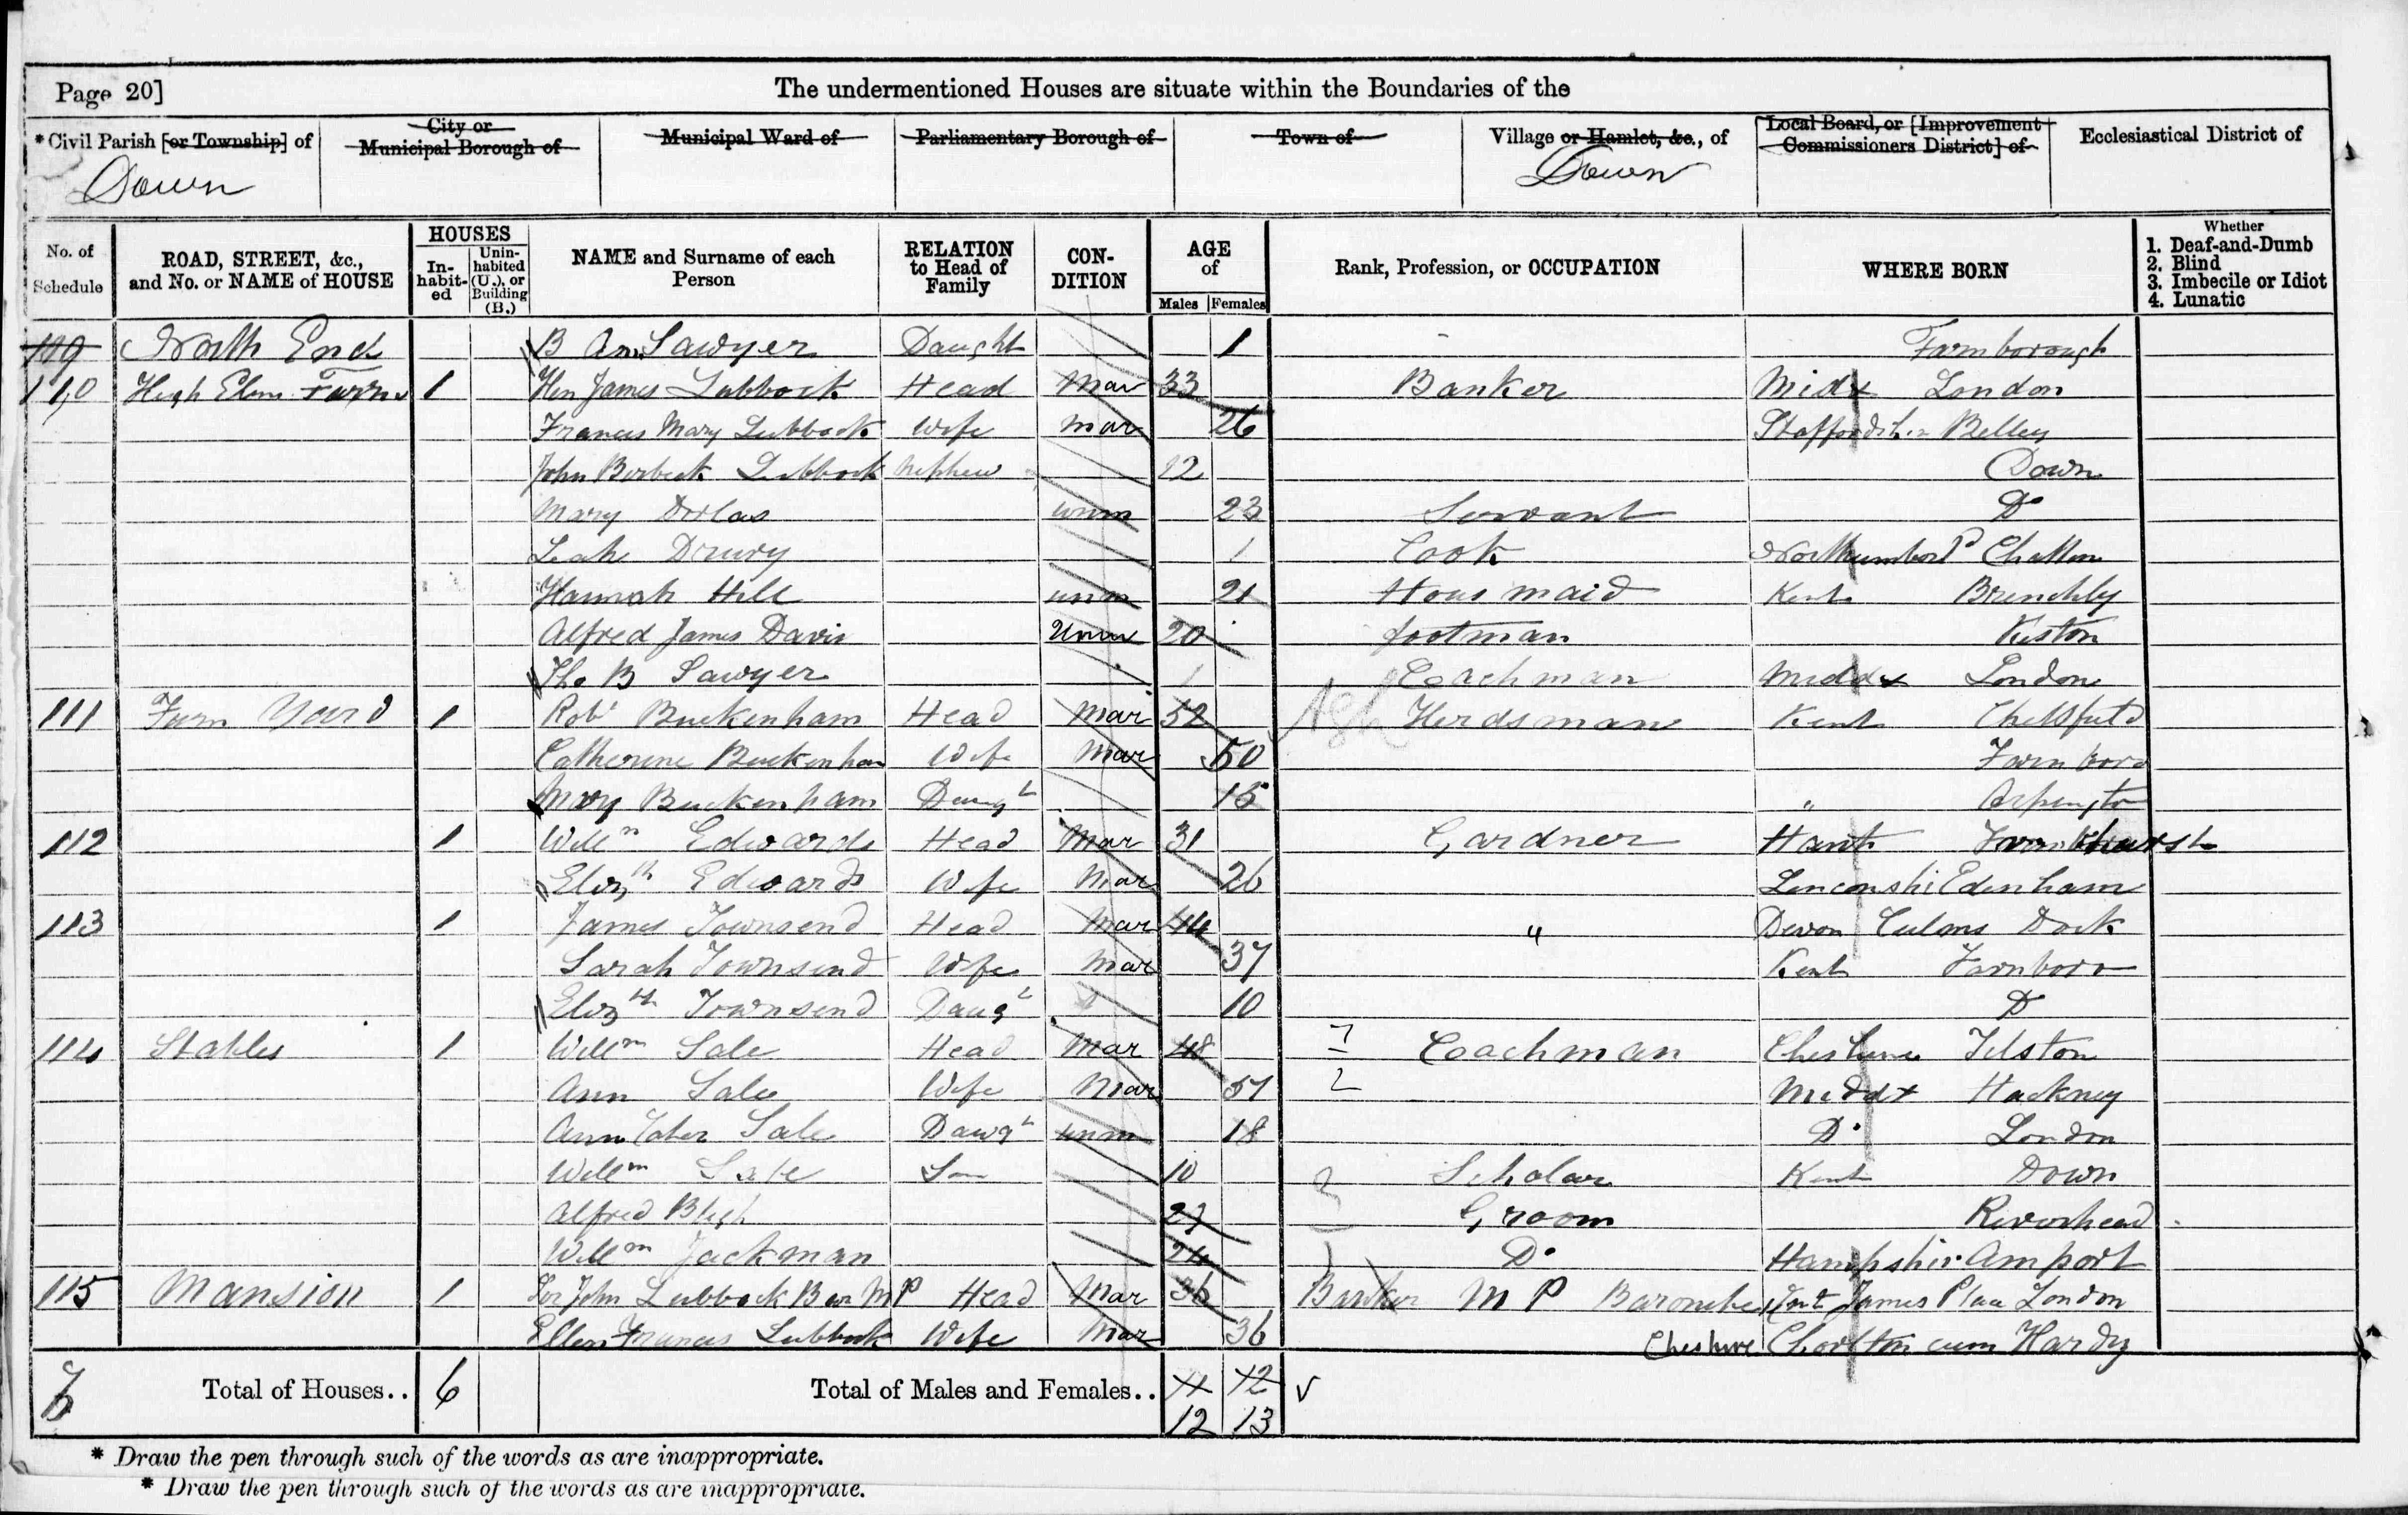 Page 20]
The undermentioned Houses are situate within the Boundaries of the
*Civil Parish [or Township] of
City or Municipal Borough of
Municipal Ward of
Parliamentary Borough of
Town of
Village or Hamlet, &c., of
Local Board, or [Improvement Commissioners District] of
Ecclesiastical District of
Down
Down
No. of Schedule
ROAD, STREET, &c., and No. or NAME of HOUSE
HOUSES
In-habit-ed
Unin-habited (U.), or Building (B.)
NAME and Surname of each Person
RELATION to Head of Family
CON-DITION
AGE of
Males
Females
Rank, Profession, or OCCUPATION
WHERE BORN
Whether
1. Deaf-and-Dumb
2. Blind
3. Imbecile or Idiot
4. Lunatic
119 North End B Ann Sawyer Daught 1 Farnborough
110 High Elms Farm 1 Hen James Lubbock Head Mar 33 Banker Midx London
Frances Mary Lubbock Wife Mar 26 Belley
John Birbeck Lubbock Nephew 12 Down
Mary unm 23 Servant Do
Leah Drury 1 Cook Chatton
Hannah Hill unm 21 Hous maid Kent Brenchly
Alfred James Davis Unm 20 footman Keston
Tho B Sawyer 1 Coachman Middx London
111 Farm Yard 1 Robt Buckenham Head Mar 52 Herdsman Kent
Catherine Buckenham Wife Mar 50 Farnboro
Mary Buckenham Daugt 15 "
112 1 Willm Edwards Head Mar 31 Gardner Hant
Elizth Edwards Wife Mar 26 Edenham
113 1 James Townsend Head Mar 44 " Devon Culms Dock
Sarah Townsend Wife Mar 37 Kent Farnboro
Elizth Townsend Daugt 10 Do
114 Stables 1 Willm Sale Head Mar 48 Coachman Cheshire Tilston
Ann Sale Wife Mar 57 Middx Hackney
Ann Sale Dawgt unm 18 Do London
Willm Sale Son 10 Scholar Kent Down
Alfred Bligh 27 Groom Riverhead
Willm Jackman 24 Do Hampshir Amport
115 Mansion 1 Sir John Lubbock Bar M P Head Mar 36 Banker M P James Place London
Ellen Frances Lubbock Wife Mar 36 Cheshire Chorlton cum Hardy
Total of Houses.. 6
Total of Males and Females.. 11 12
12 13
* Draw the pen through such of the words as are inappropriate.
* Draw the pen through such of the words as are inappropriate.